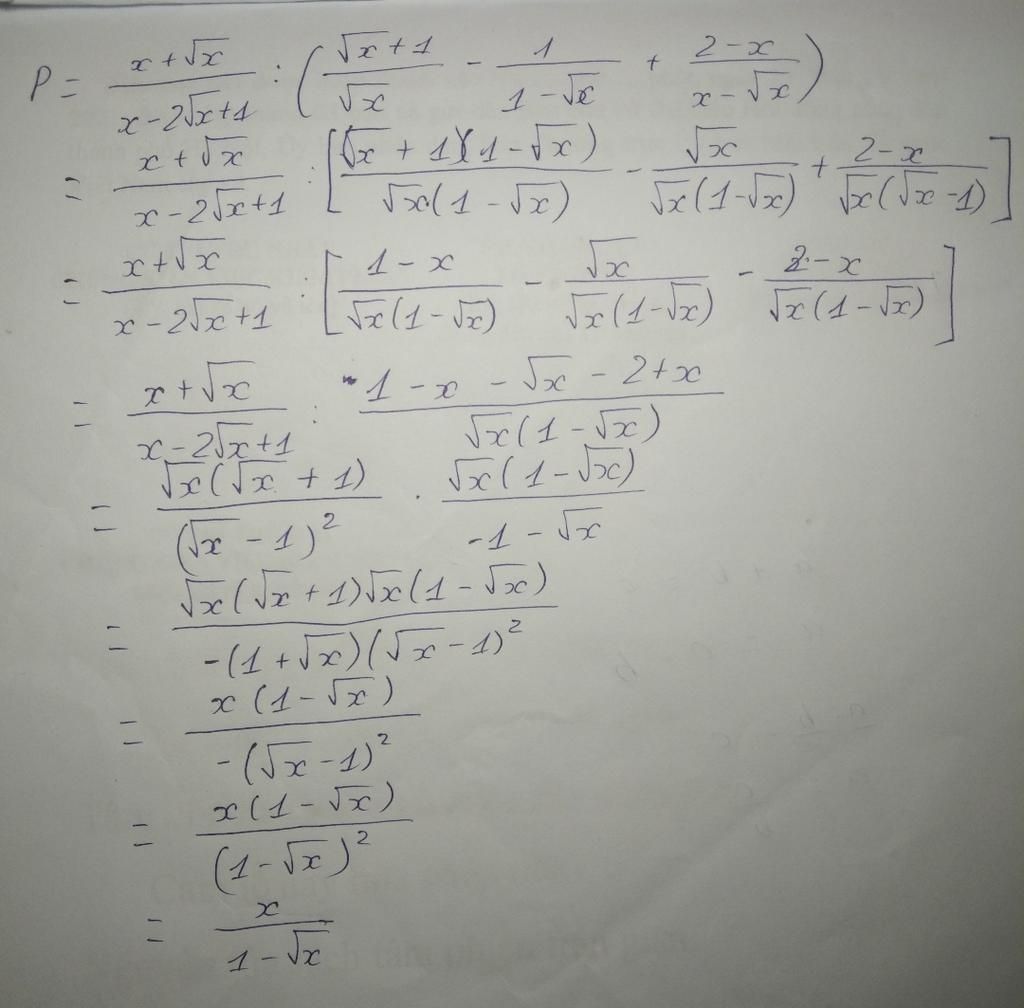 P = \frac{x+\sqrt{x}}{x-2\sqrt{x}+1} : \left( \frac{\sqrt{x}+1}{\sqrt{x}} - \frac{1}{1-\sqrt{x}} + \frac{2-x}{x-\sqrt{x}} \right)
= \frac{x+\sqrt{x}}{x-2\sqrt{x}+1} : \left[ \frac{(\sqrt{x}+1)(1-\sqrt{x})}{\sqrt{x}(1-\sqrt{x})} - \frac{\sqrt{x}}{\sqrt{x}(1-\sqrt{x})} + \frac{2-x}{\sqrt{x}(\sqrt{x}-1)} \right]
= \frac{x+\sqrt{x}}{x-2\sqrt{x}+1} : \left[ \frac{1-x}{\sqrt{x}(1-\sqrt{x})} - \frac{\sqrt{x}}{\sqrt{x}(1-\sqrt{x})} - \frac{2-x}{\sqrt{x}(1-\sqrt{x})} \right]
= \frac{x+\sqrt{x}}{x-2\sqrt{x}+1} : \frac{1-x-\sqrt{x}-2+x}{\sqrt{x}(1-\sqrt{x})}
= \frac{\sqrt{x}(\sqrt{x}+1)}{(\sqrt{x}-1)^2} . \frac{\sqrt{x}(1-\sqrt{x})}{-1-\sqrt{x}}
= \frac{\sqrt{x}(\sqrt{x}+1)\sqrt{x}(1-\sqrt{x})}{-(1+\sqrt{x})(\sqrt{x}-1)^2}
= \frac{x(1-\sqrt{x})}{-(\sqrt{x}-1)^2}
= \frac{x(1-\sqrt{x})}{(1-\sqrt{x})^2}
= \frac{x}{1-\sqrt{x}}